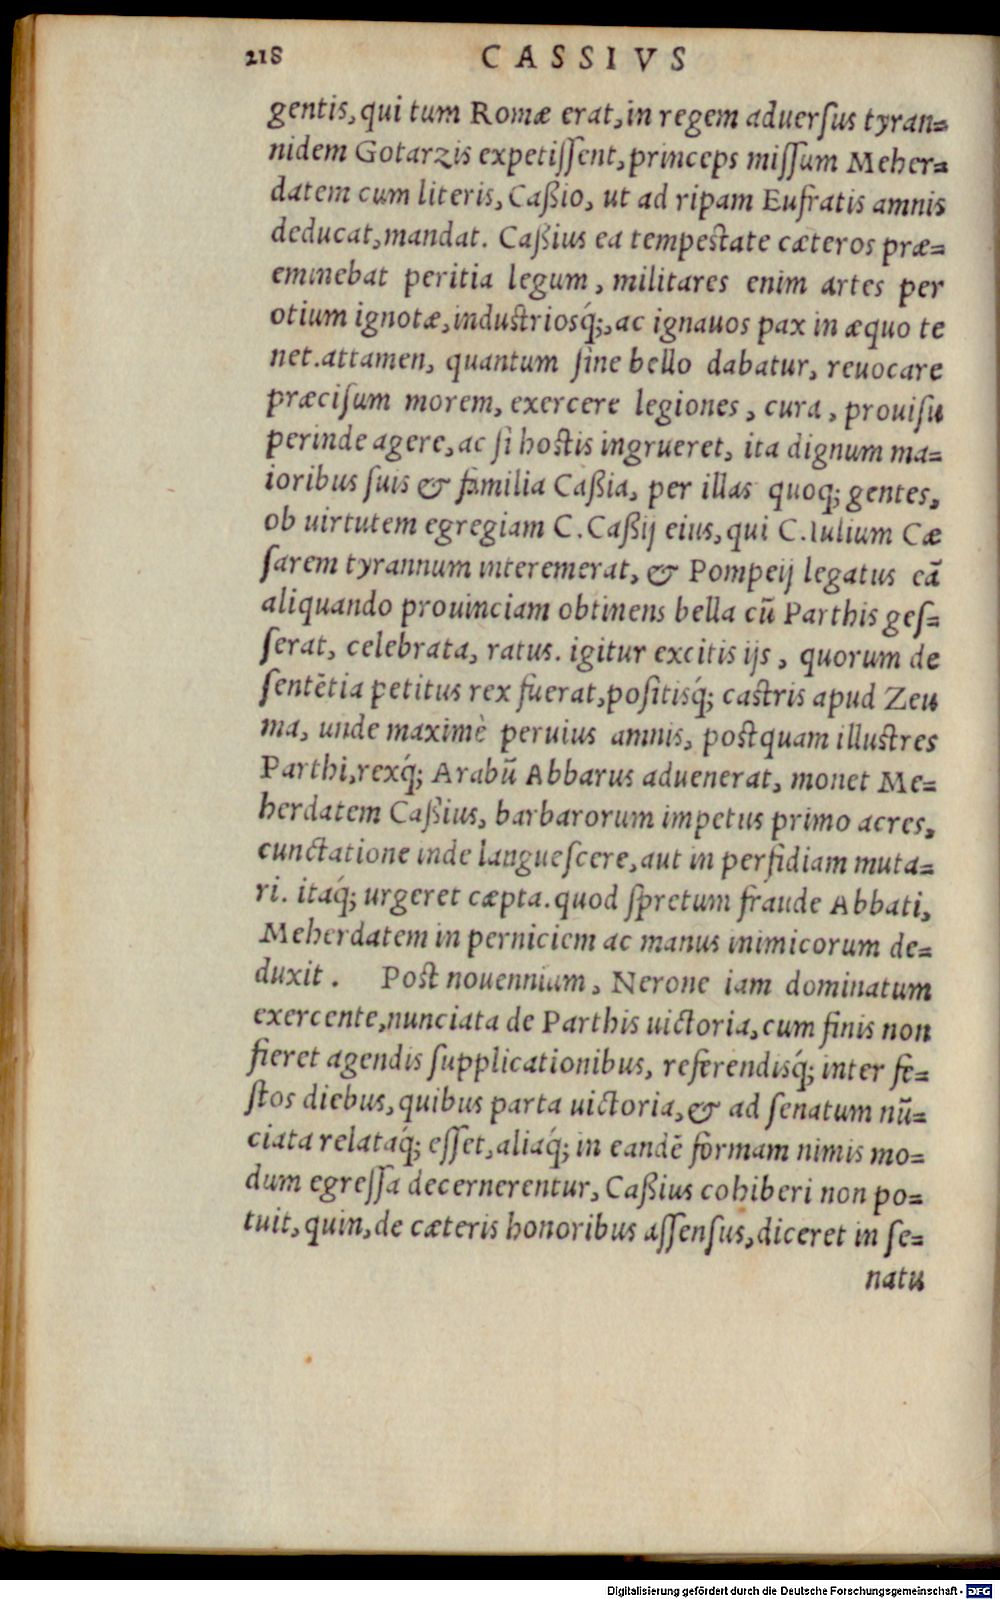 218 CASSIVS
gentis, qui tum Romæ erat, in regem aduerſus tyran=
nidem Gotarzis expetiſſent, princeps miſſum Meher=
datem cum literis, Caßio, ut ad ripam Eufratis amnis
deducat, mandat. Caßius ea tempestate cæteros præ=
eminebat peritia legum, militares enim artes per
otium ignotæ, industriosq́;, ac ignauos pax in æquo te
net. attamen, quantum ſine bello dabatur, reuocare
præciſum morem, exercere legiones, cura, prouiſu
perinde agere, ac ſi hostis ingrueret, ita dignum ma=
ioribus ſuis & familia Caßia, per illas quoq; gentes,
ob uirtutem egregiam C. Caßij eius, qui C. Iulium Cæ
ſarem tyrannum interemerat, & Pompeij legatus eā
aliquando prouinciam obtinens bella cū Parthis geſ=
ſerat, celebrata, ratus. igitur excitis ijs, quorum de
ſentētia petitus rex fuerat, poſitisq́; castris apud Zeu
ma, unde maximè peruius amnis, postquam illustres
Parthi, rexq́; Arabū Abbarus aduenerat, monet Me=
herdatem Caßius, barbarorum impetus primo acres,
cunctatione inde langueſcere, aut in perfidiam muta=
ri. itaq́; urgeret cæpta. quod ſpretum fraude Abbati,
Meherdatem in perniciem ac manus inimicorum de=
duxit. Post nouennium, Nerone iam dominatum
exercente, nunciata de Parthis uictoria, cum finis non
fieret agendis ſupplicationibus, referendisq́; inter fe=
ſtos diebus, quibus parta uictoria, & ad ſenatum nū=
ciata relataq́; eſſet, aliaq́; in eandē formam nimis mo=
dum egreſſa decernerentur, Caßius cohiberi non po=
tuit, quin, de cæteris honoribus aſſenſus, diceret in ſe=
natu
Digitalisierung gefördert durch die Deutsche Forschungsgemeinschaft - DFG